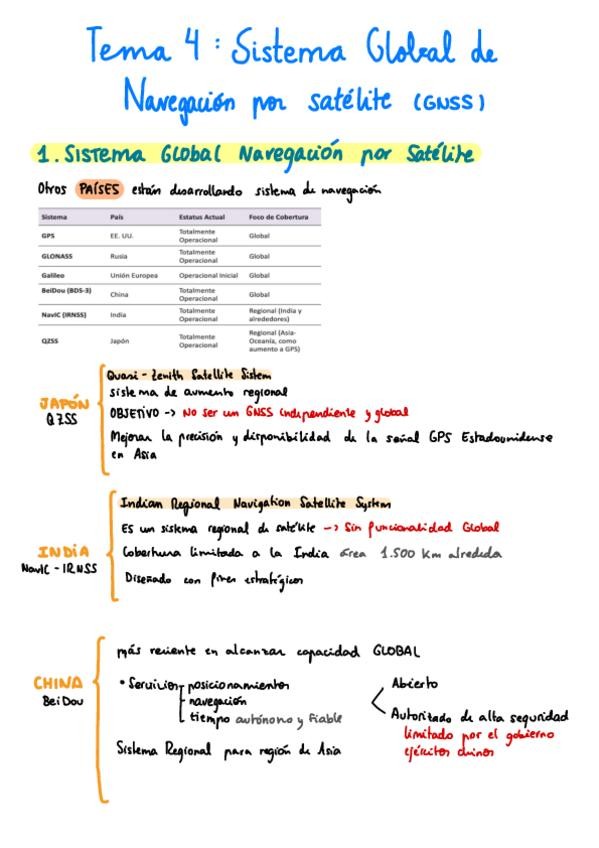 Tema 4 : Sistema Global de
Navegación por satélite (GNSS)
1. SISTEMA GLOBAL NAVEGACIÓN por SATÉLITE
Otros PAÍSES están desarrollando sistema de navegación
Sistema País Estatus Actual Foco de Cobertura
GPS EE. UU. Totalmente Operacional Global
GLONASS Rusia Totalmente Operacional Global
Galileo Unión Europea Operacional Inicial Global
BeiDou (BDS-3) China Totalmente Operacional Global
NavIC (IRNSS) India Totalmente Operacional Regional (India y alrededores)
QZSS Japón Totalmente Operacional Regional (Asia-Oceanía, como aumento a GPS)
JAPÓN
QZSS
Quasi - Zenith Satellite Sistem
sistema de aumento regional
OBJETIVO -> No ser un GNSS independiente y global
Mejorar la precisión y disponibilidad de la señal GPS Estadounidense
en Asia
INDIA
NavIC - IRNSS
Indian Regional Navigation Satellite System
Es un sistema regional de satélite -> Sin funcionalidad Global
Cobertura limitada a la India área 1.500 Km alrededor
Diseñado con fines estratégicos
CHINA
BeiDou
más reciente en alcanzar capacidad GLOBAL
• Servicios posicionamiento
navegación
tiempo autónono y fiable
Abierto
Autorizado de alta seguridad
limitado por el gobierno
ejércitos chinos
Sistema Regional para región de Asia